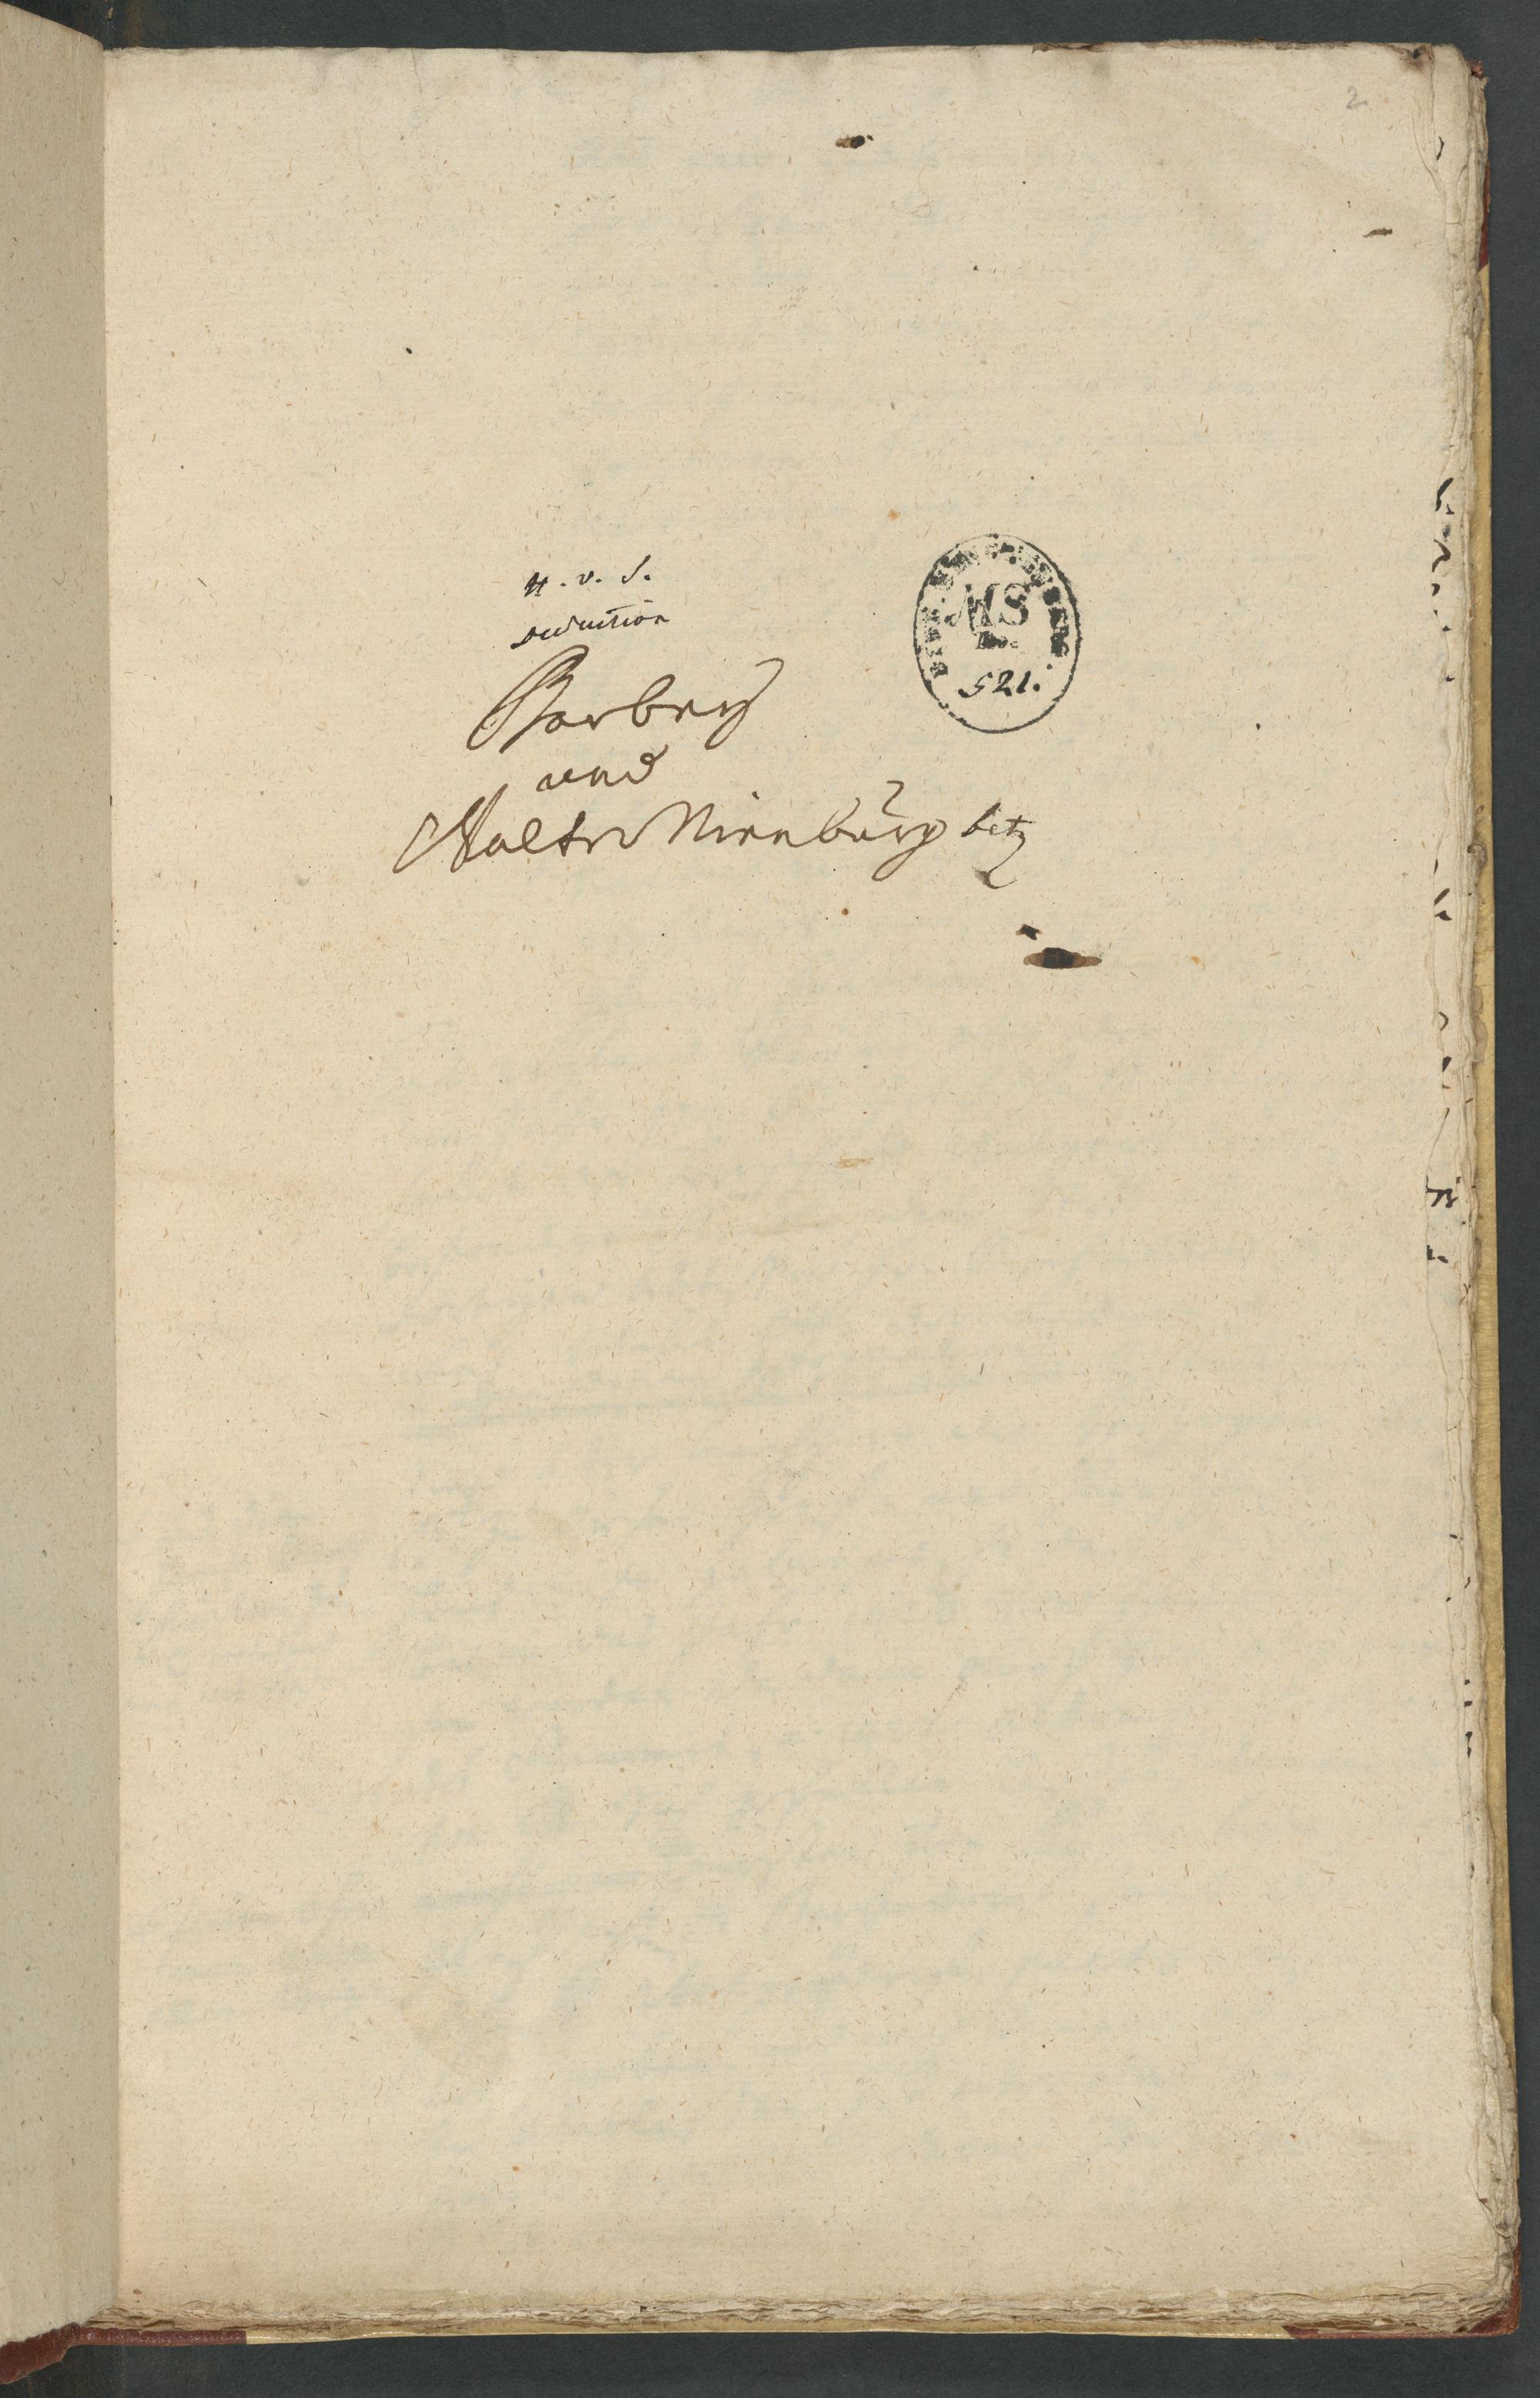 2
H. v. S.
deduction
Barbey
und
Walter Nienburg betr
MS
521.